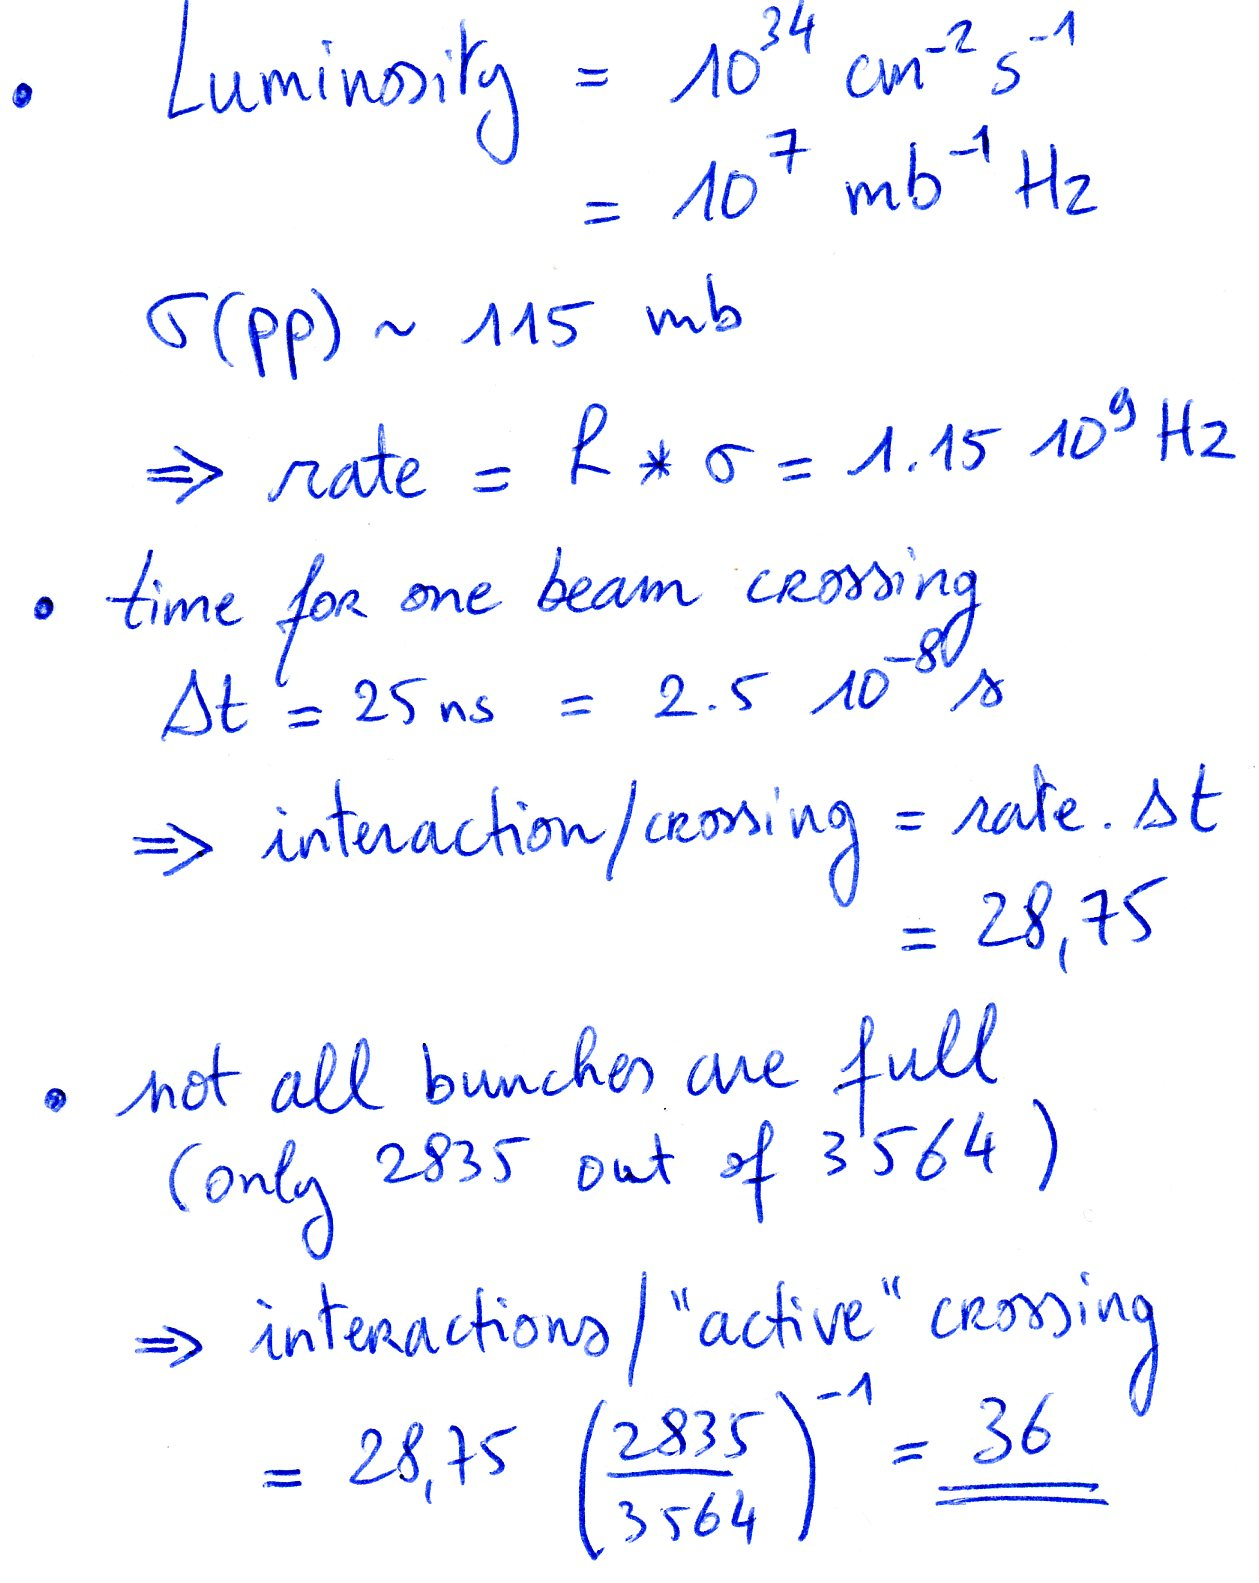 • Luminosity = 10^34 cm^-2 s^-1
= 10^7 mb^-1 Hz
σ(pp) ~ 115 mb
⇒ rate = L * σ = 1.15 10^9 Hz
• time for one beam crossing
Δt = 25 ns = 2.5 10^-8 s
⇒ interaction/crossing = rate . Δt
= 28,75
• not all bunches are full
(only 2835 out of 3564)
⇒ interactions / "active" crossing
= 28,75 (2835/3564)^-1 = 36